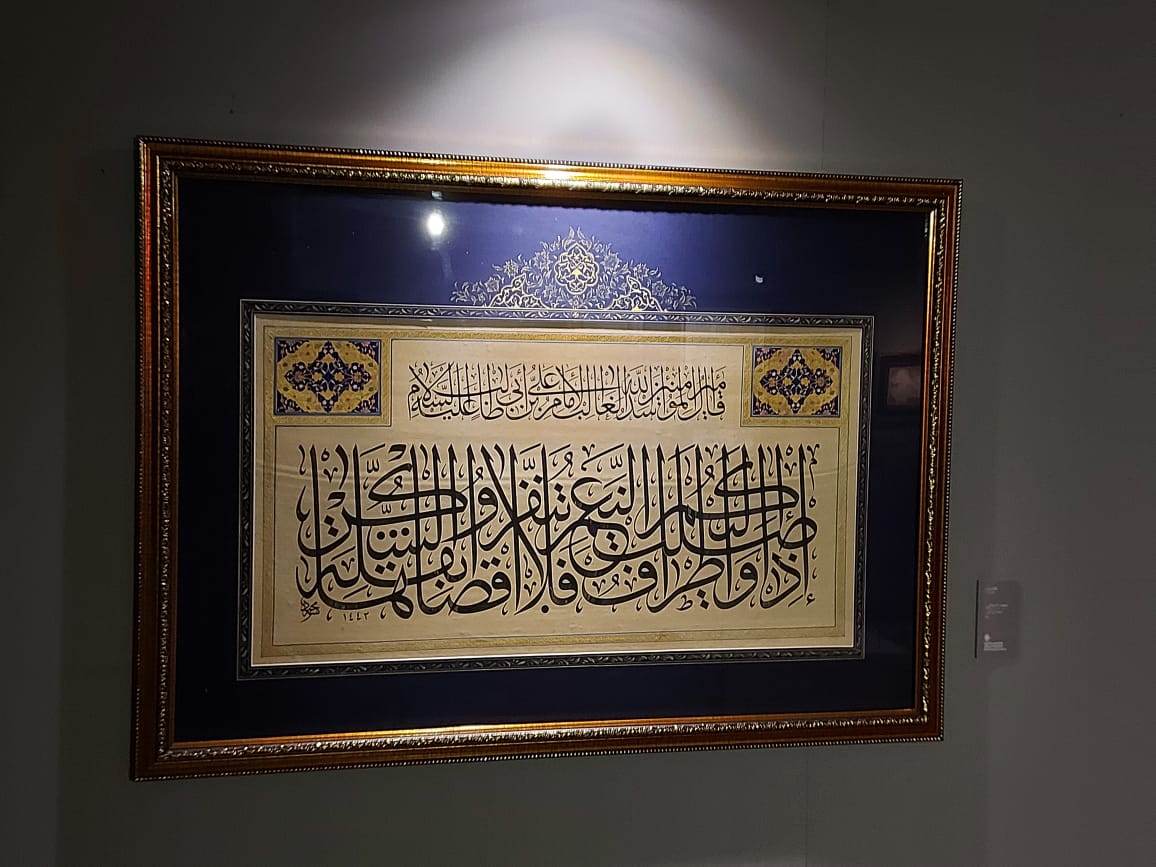 قال أمير المؤمنين أسد الله الغالب الإمام علي بن أبي طالب عليه السلام
إذا وصلت إليكم أطراف النعم فلا تنفروا أقصاها بقلة الشكر
١٤٤٣